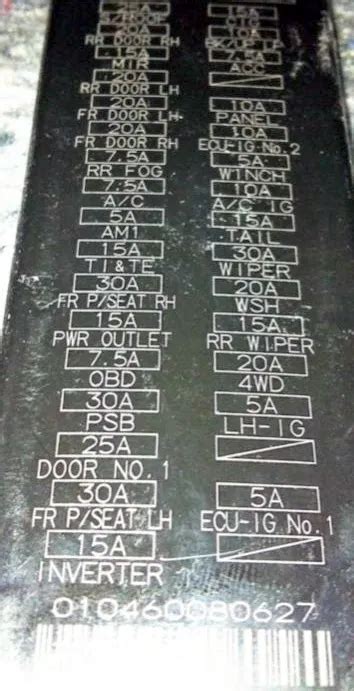 25A
S/ROOF
20A
RR DOOR RH
15A
MIR
20A
RR DOOR LH
20A
FR DOOR LH
20A
FR DOOR RH
7.5A
RR FOG
7.5A
A/C
5A
AM1
15A
TI&TE
30A
FR P/SEAT RH
15A
PWR OUTLET
7.5A
OBD
30A
PSB
25A
DOOR NO.1
30A
FR P/SEAT LH
15A
INVERTER
15A
CIG
10A
BK/UP LP
7.5A
ACC
10A
PANEL
10A
ECU-IG No.2
5A
WINCH
10A
A/C IG
15A
TAIL
30A
WIPER
20A
WSH
15A
RR WIPER
20A
4WD
5A
LH-IG
5A
ECU-IG No.1
010460080627